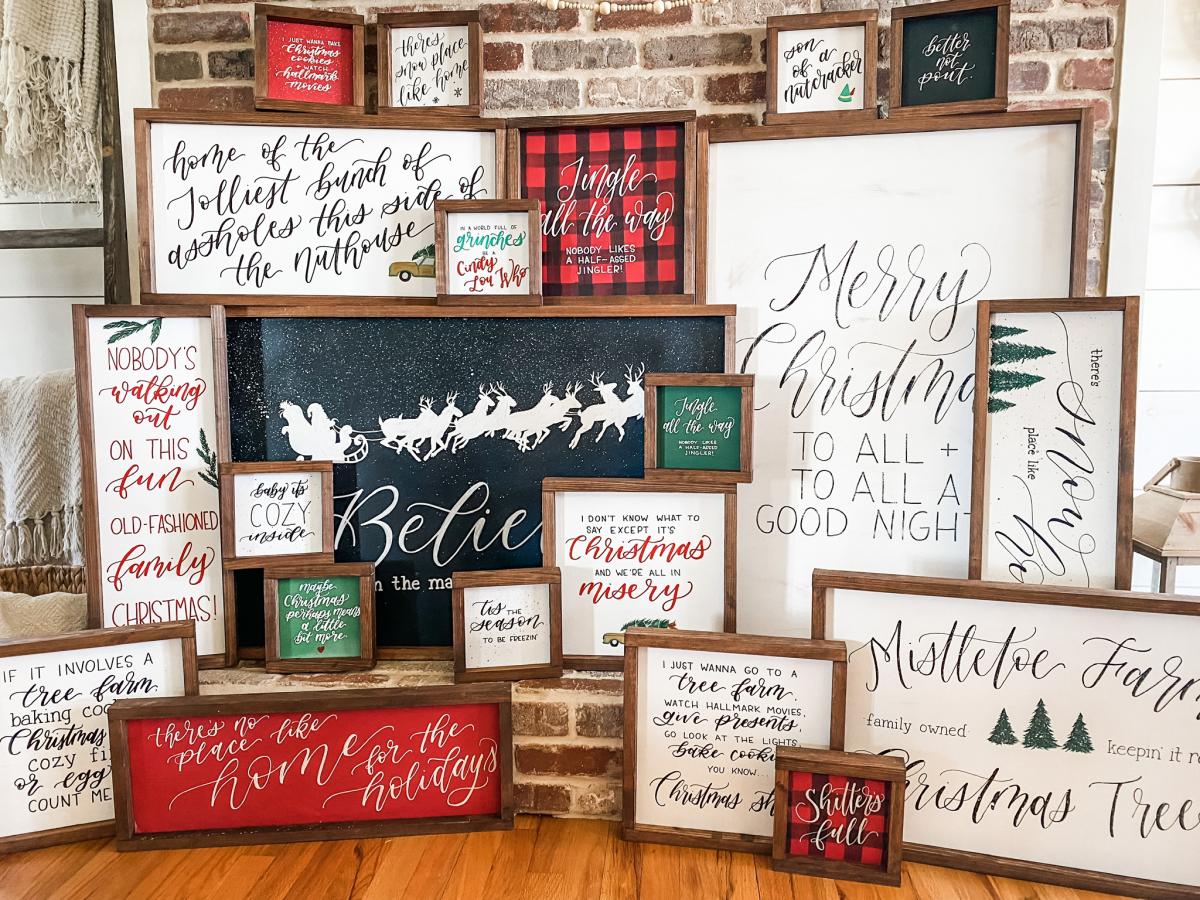 I JUST WANNA BAKE
Christmas
cookies
+ WATCH
hallmark
movies
there's
snow place
like home
son
of a
nutcracker
better
not
pout.
home of the
Jolliest bunch of
assholes this side of
the nuthouse
IN A WORLD FULL OF
grinches
BE A
Cindy
Lou Who
Jingle
all the way
NOBODY LIKES
A HALF-ASSED
JINGLER!
Merry
Christma
TO ALL +
TO ALL A
GOOD NIGHT
there's
snow
place like
ho
NOBODY'S
walking
out
ON THIS
fun
OLD-FASHIONED
family
CHRISTMAS!
Belie
n the ma
Jingle
all the way
NOBODY LIKES
A HALF-ASSED
JINGLER!
baby it's
COZY
inside
maybe
Christmas
perhaps means
a little
bit more.
'tis THE
season
TO BE FREEZIN'
I DON'T KNOW WHAT TO
SAY EXCEPT IT'S
Christmas
AND WE'RE ALL IN
misery
IF IT INVOLVES A
tree farm
baking coo
Christmas
cozy fi
or egg
COUNT ME
there's no
place like
home for the
holidays
I JUST WANNA GO TO A
tree farm,
WATCH HALLMARK MOVIES,
give presents,
GO LOOK AT THE LIGHTS,
bake cooki
YOU KNOW...
Christmas sh
Shitter's
full
Mistletoe Farm
family owned
keepin' it re
Christmas Tree